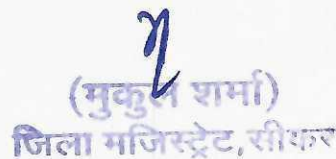 (मुकुल शर्मा)
जिला मजिस्ट्रेट, सीकर